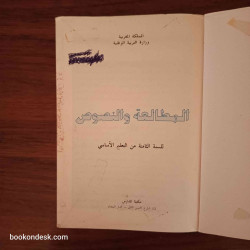 المملكة المغربية
وزارة التربية الوطنية
المطالعة والنصوص
للسنة الثامنة من التعليم الأساسي
bookondesk.com